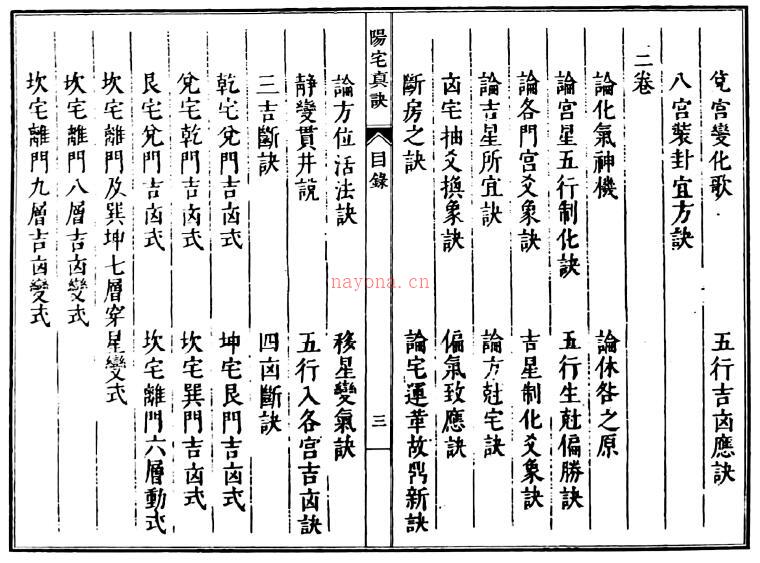 兌宮變化歌 五行吉凶應訣
八宮裝卦宜方訣
二卷
論化氣神機 論休咎之原
論宮星五行制化訣 五行生尅偏勝訣
論各門宮爻象訣 吉星制化爻象訣
論吉星所宜訣 論方尅宅訣
凶宅抽爻換象訣 偏氣致應訣
斷房之訣 論宅運革故鼎新訣
陽宅真訣 目錄 三
論方位活法訣 移星變氣訣
靜變貫井說 五行入各宮吉凶訣
三吉斷訣 四凶斷訣
乾宅兌門吉凶式 坤宅艮門吉凶式
兌宅乾門吉凶式 坎宅巽門吉凶式
艮宅兌門吉凶式 坎宅離門六層動式
坎宅離門及巽坤七層穿星變式
坎宅離門八層吉凶變式
坎宅離門九層吉凶變式
nayona.cn